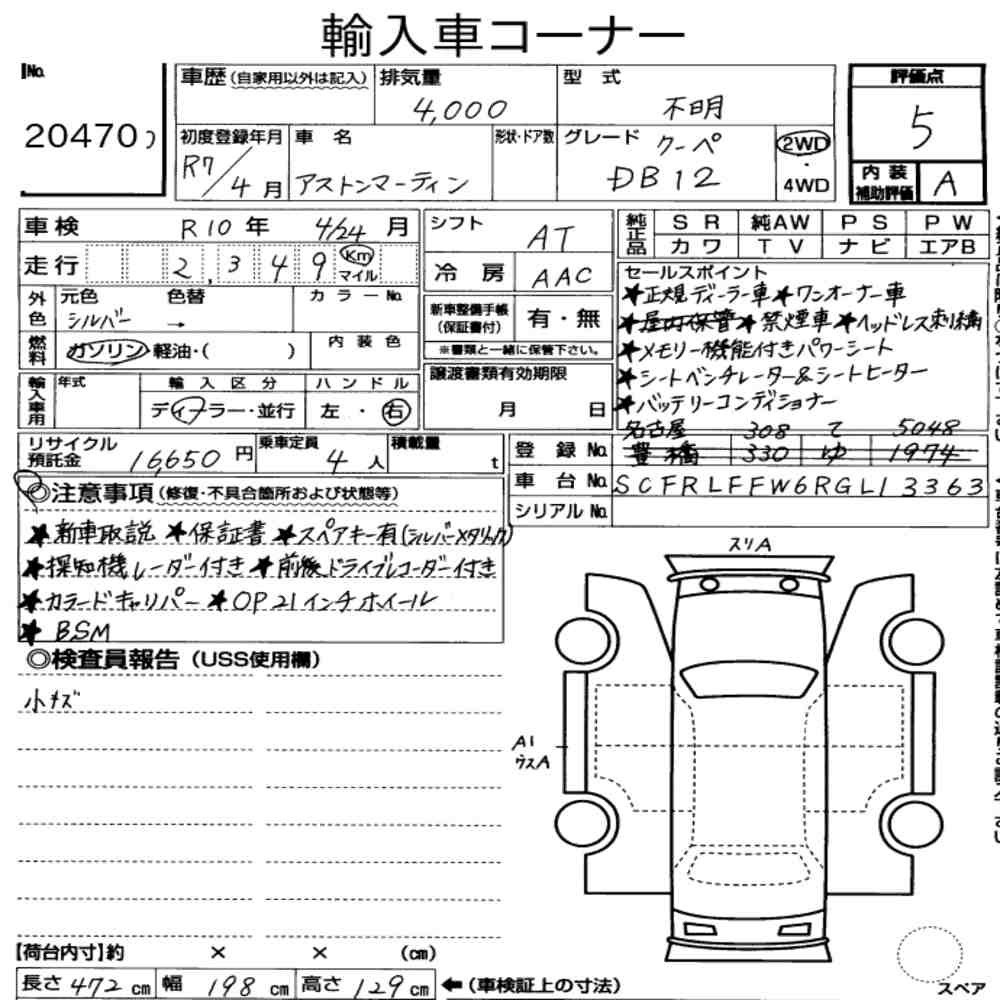 輸入車コーナー
No.
20470
車歴 (自家用以外は記入)
排気量
4,000
型式
不明
評価点
5
初度登録年月
R7/4月
車名
アストンマーティン
形状・ドア数
グレード
クーペ
DB12
2WD
・
4WD
内装
補助評価
A
車検 R10年 4/24月
走行 2,349 Km マイル
外色
元色 色替 カラーNo.
シルバー →
燃料
ガソリン・軽油・( )
内装色
輸入車用
年式
輸入区分
ディーラー・並行
ハンドル
左・右
シフト
AT
冷房
AAC
新車整備手帳
(保証書付)
有・無
※書類と一緒に保管下さい。
譲渡書類有効期限
月 日
純正品
SR 純AW PS PW
カワ TV ナビ エアB
セールスポイント
★正規ディーラー車★ワンオーナー車
★屋内保管★禁煙車★ヘッドレス刺繍
★メモリー機能付きパワーシート
★シートベンチレーター&シートヒーター
★バッテリーコンディショナー
リサイクル
預託金
16,650円
乗車定員
4人
積載量
t
名古屋 308 て 5048
登録No. 豊橋 330 ゆ 1974
車台No. SCFRLFFW6RGL13363
シリアルNo.
◎注意事項(修復・不具合箇所および状態等)
★新車取説 ★保証書 ★スペアキー有(シルバーメタリック)
★探知機レーダー付き ★前後ドライブレコーダー付き
★カラードキャリパー ★OP21インチホイール
★BSM
◎検査員報告(USS使用欄)
小キズ
スリA
A1
ウスA
【荷台内寸】約 × × (cm)
長さ472cm 幅198cm 高さ129cm
←(車検証上の寸法)
スペア